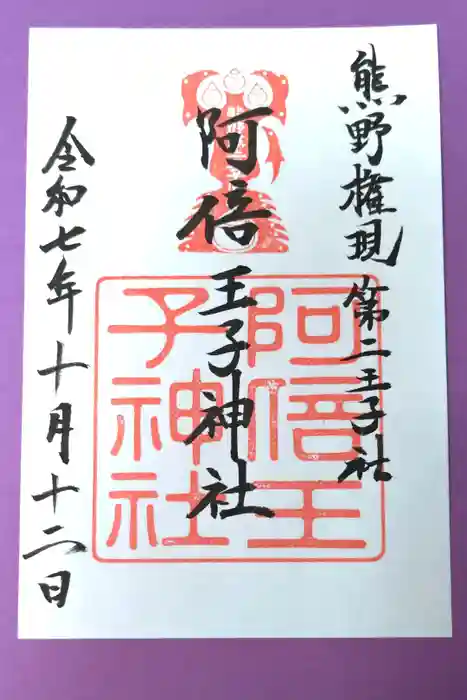 熊野権現 第二王子社
阿倍王子神社
令和七年十月十二日
阿倍王
子神社